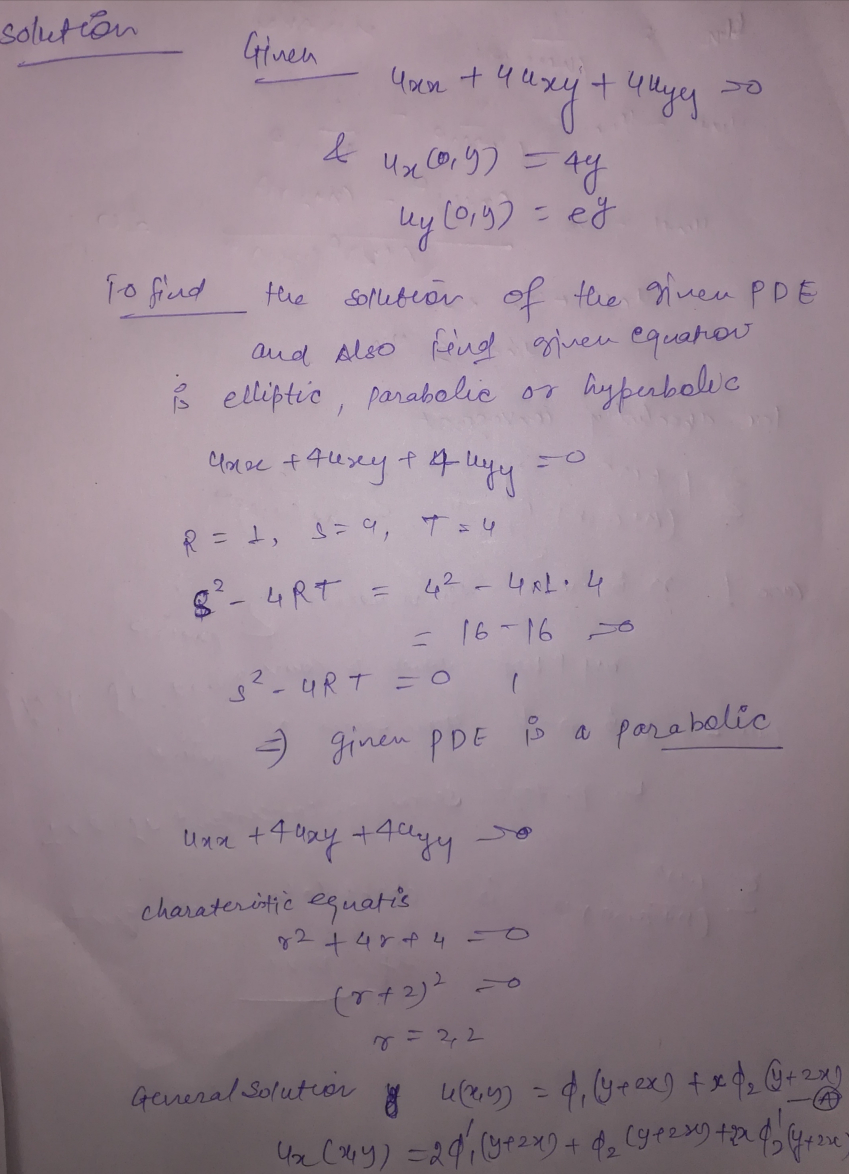 solution
Given
uxx + 4uxy + 4uyy = 0
& ux(0,y) = 4y
uy(0,y) = e^y
To find the solution of the given PDE
and also find given equation
is elliptic, parabolic or hyperbolic
uxx + 4uxy + 4uyy = 0
R = 1, S = 4, T = 4
S² - 4RT = 4² - 4×1·4
= 16 - 16 = 0
S² - 4RT = 0
⇒ given PDE is a parabolic
uxx + 4uxy + 4uyy = 0
charateristic equatis
r² + 4r + 4 = 0
(r+2)² = 0
r = 2,2
General Solution u(x,y) = ϕ₁(y+2x) + xϕ₂(y+2x) —(A)
ux(x,y) = 2ϕ₁'(y+2x) + ϕ₂(y+2x) + 2xϕ₂'(y+2x)